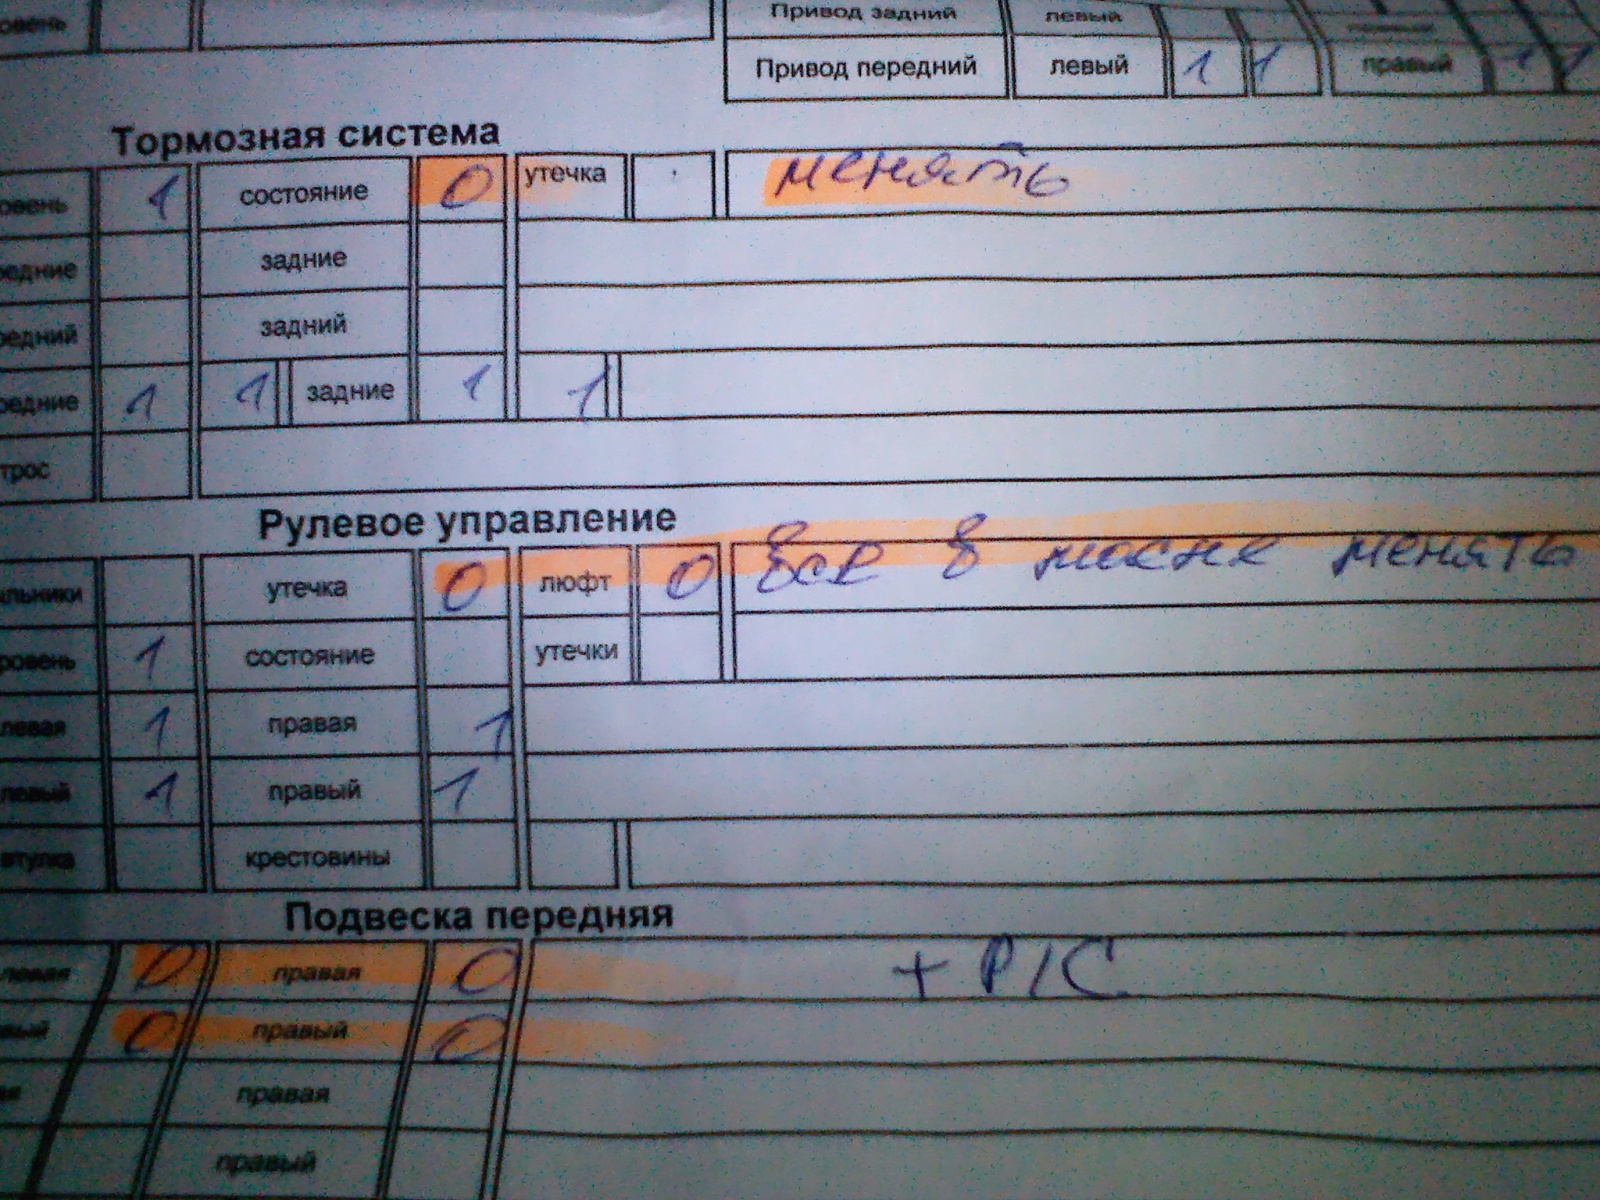 Привод задний левый
Привод передний левый 1 1 правый 1 1
Тормозная система
овень 1 состояние 0 утечка менять
редние задние
редний задний
редние 1 1 задние 1 1
трос
Рулевое управление
льники утечка 0 люфт 0 все в масле менять
ровень 1 состояние утечки
левая 1 правая 1
левый 1 правый 1
втулка крестовины
Подвеска передняя
левая 0 правая 0 + Р/С
вый 0 правый 0
ая правая
правый